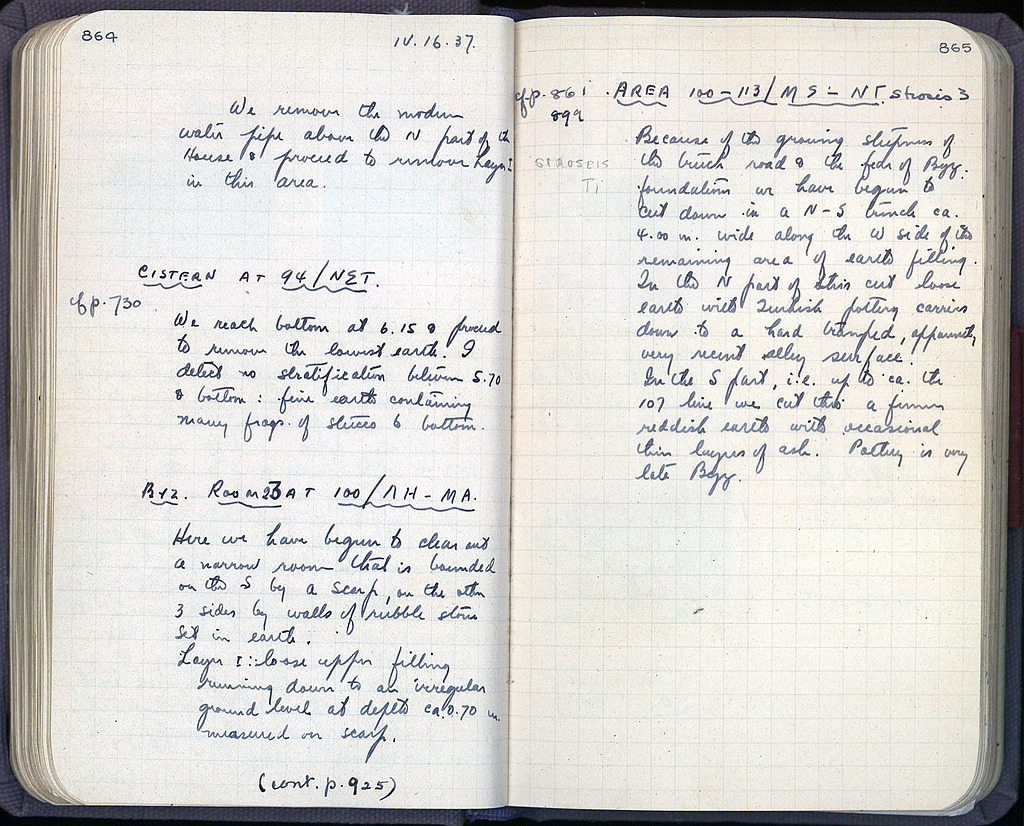 864
IV.16.37.
We remove the modern
water pipe above the N part of the
House & proceed to remove Layer I
in this area.
CISTERN AT 94/ΝΣΤ.
cf p. 730
We reach bottom at 6.15 & proceed
to remove the lowest earth. I
detect no stratification between 5.70
& bottom: fine earth containing
many frags. of stucco to bottom.
BYZ. ROOM 23 AT 100/ΛΗ-ΜΑ.
Here we have begun to clear out
a narrow room that is bounded
on the S by a scarp, on the other
3 sides by walls of rubble stone
set in earth.
Layer I: loose upper filling
running down to an irregular
ground level at depth ca. 0.70 m.
measured on scarp.
(cont. p. 925)
865
cf p. 861
899
AREA 100-113/ΜΣ-ΝΓ. Strosis 3
STROSEIS
Because of the growing steepness of
the truck road & the fear of Byz.
foundations we have begun to
cut down in a N-S trench ca.
4.00 m. wide along the W side of the
remaining area of earth filling.
In the N part of this cut loose
earth with Turkish pottery carries
down to a hard tramped, apparently
very recent alley surface.
In the S part, i.e. up to ca. the
107 line we cut thro a firmer
reddish earth with occasional
thin layers of ash. Pottery is very
late Byz.